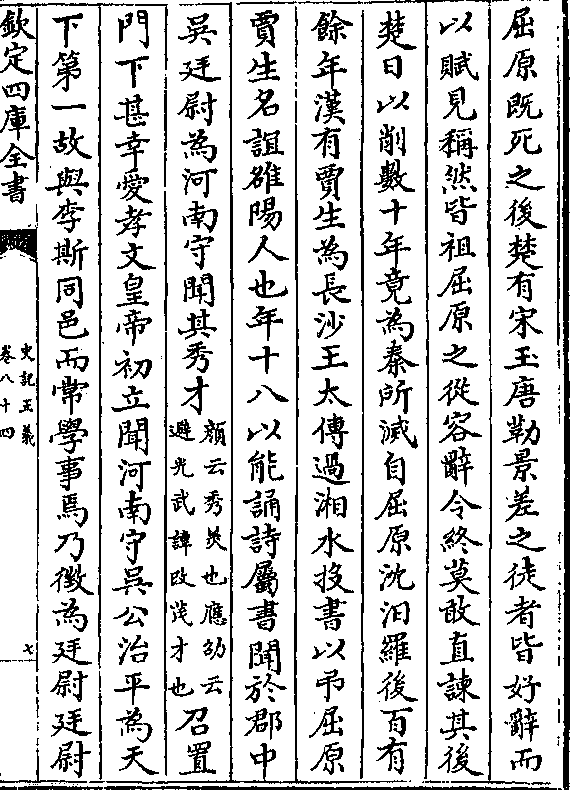 屈原既死之後楚有宋玉唐勒景差之徒者皆好辭而
以賦見稱然皆祖屈原之從容辭令終莫敢直諫其後
楚日以削數十年竟為秦所滅自屈原沈汨羅後百有
餘年漢有賈生為長沙王太傅過湘水投書以弔屈原
賈生名誼雒陽人也年十八以能誦詩屬書聞於郡中
吳廷尉為河南守聞其秀才顔云秀美也應劭云避光武諱改茂才也召置
門下甚幸愛孝文皇帝初立聞河南守吳公治平為天
下第一故與李斯同邑而常學事焉乃徵為廷尉廷尉
欽定四庫全書
史記正義
卷八十四
七